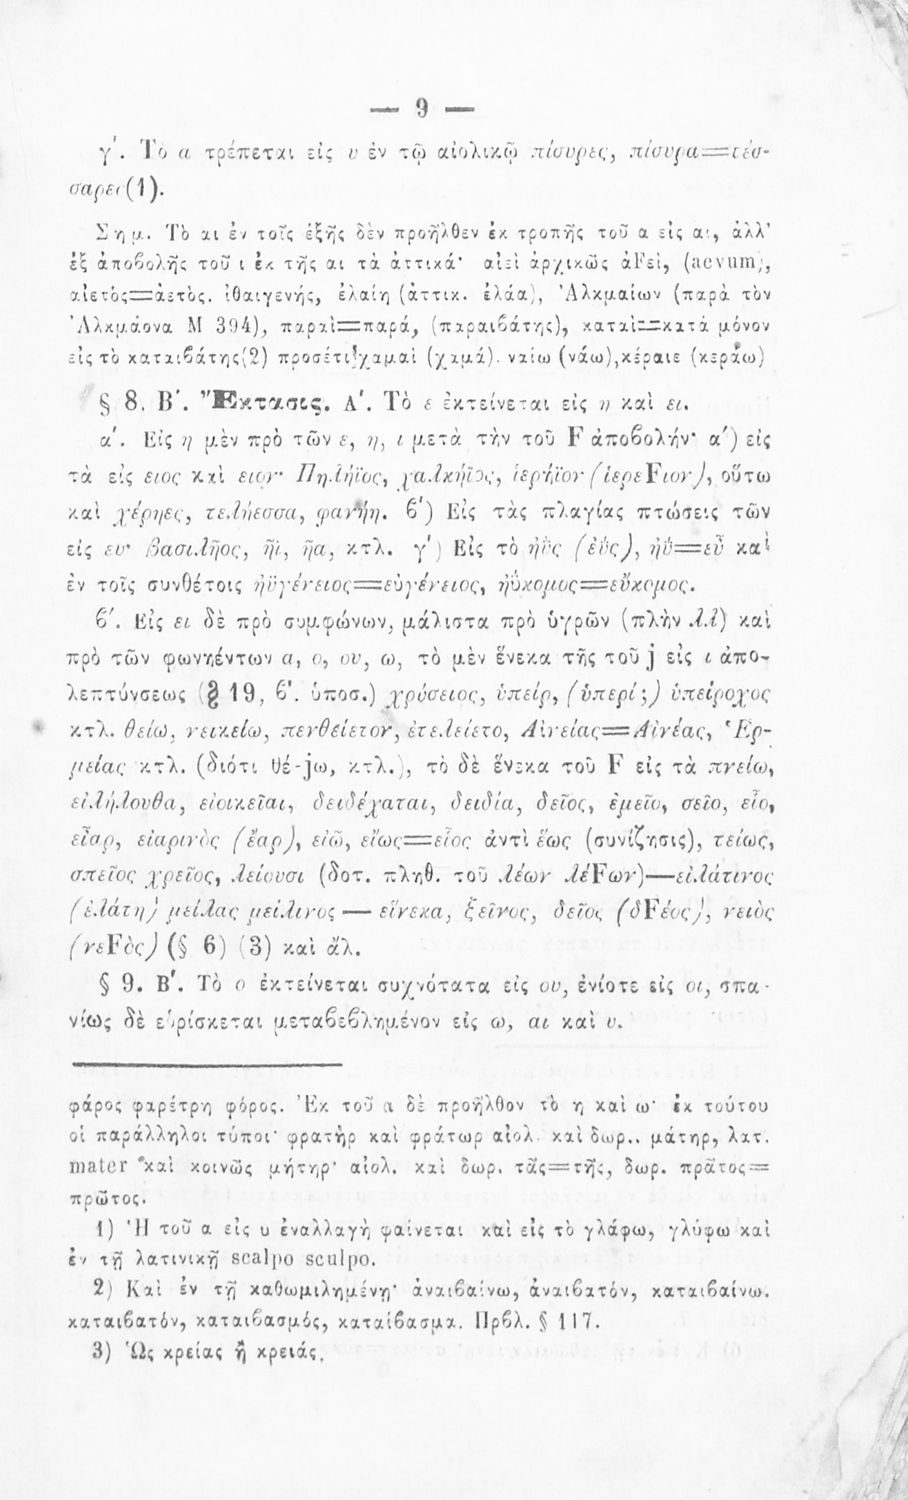 — 9 —
γ΄. Τὸ α τρέπεται εἰς υ ἐν τῷ αἰολικῷ πίσυρες, πίσυρα=τέσ-
σαρες(1).
Σημ. Τὸ αι ἐν τοῖς ἑξῆς δὲν προῆλθεν ἐκ τροπῆς τοῦ α εἰς αι, ἀλλ'
ἐξ ἀποβολῆς τοῦ ι ἐκ τῆς αι τὰ ἀττικά· αἰεὶ ἀρχικῶς ἀFεὶ, (aevum),
αἰετὸς=ἀετὸς. ἰθαιγενής, ἐλαίη (ἀττικ. ἐλάα), Ἀλκμαίων (παρὰ τὸν
Ἀλκμάονα Μ 394), παραὶ=παρά, (παραιβάτης), καταὶ=κατὰ μόνον
εἰς τὸ καταιβάτης(2) προσέτι χαμαὶ (χαμά). ναίω (νάω), κέραιε (κεράω)
§ 8. Β΄. Ἔκτασις. Α΄. Τὸ ε ἐκτείνεται εἰς η καὶ ει.
α΄. Εἰς η μὲν πρὸ τῶν ε, η, ι μετὰ τὴν τοῦ F ἀποβολήν· α΄) εἰς
τὰ εἰς ειος καὶ ειον· Πηλήϊος, χαλκήϊος, ἱερήϊον (ἱερεFιον), οὕτω
καὶ χέρηες, τελήεσσα, φανήη. β΄) Εἰς τὰς πλαγίας πτώσεις τῶν
εἰς ευ· βασιλῆος, ῆϊ, ῆα, κτλ. γ΄) Εἰς τὸ ἠΰς (ἐΰς), ἠΰ=εὖ καὶ
ἐν τοῖς συνθέτοις ἠϋγένειος=εὐγένειος, ἠΰκομος=εὔκομος.
β΄. Εἰς ει δὲ πρὸ συμφώνων, μάλιστα πρὸ ὑγρῶν (πλὴν λλ) καὶ
πρὸ τῶν φωνηέντων α, ο, ου, ω, τὸ μὲν ἕνεκα τῆς τοῦ j εἰς ι ἀπο-
λεπτύνσεως (§ 19, β΄. ὑποσ.) χρύσειος, ὑπείρ, (ὑπερί;) ὑπείροχος
κτλ. θείω, νεικείω, πενθείετον, ἐτελείετο, Αἰνείας=Αἰνέας, Ἑρ-
μείας κτλ. (διότι θέ-jω, κτλ.), τὸ δὲ ἕνεκα τοῦ F εἰς τὰ πνείω,
εἰλήλουθα, εἰοικεῖαι, δειδέχαται, δειδία, δεῖος, ἐμεῖο, σεῖο, εἷο,
εἶαρ, εἰαρινὸς (ἔαρ), εἰῶ, εἵως=εἷος ἀντὶ ἕως (συνίζησις), τείως,
σπεῖος χρεῖος, λείουσι (δοτ. πληθ. τοῦ λέων λέFων)—εἰλάτινος
(ἐλάτη) μείλας μείλινος — εἵνεκα, ξεῖνος, δεῖος (δFέος), νειὸς
(νεFὸς) (§ 6) (3) καὶ ἄλ.
§ 9. Β΄. Τὸ ο ἐκτείνεται συχνότατα εἰς ου, ἐνίοτε εἰς οι, σπα-
νίως δὲ εὑρίσκεται μεταβεβλημένον εἰς ω, αι καὶ υ.
φάρος φαρέτρη φόρος. Ἐκ τοῦ α δὲ προῆλθον τὸ η καὶ ω· ἐκ τούτου
οἱ παράλληλοι τύποι· φρατὴρ καὶ φράτωρ αἰολ. καὶ δωρ.. μάτηρ, λατ.
mater καὶ κοινῶς μήτηρ· αἰολ. καὶ δωρ. τᾶς=τῆς, δωρ. πρᾶτος=
πρῶτος.
1) Ἡ τοῦ α εἰς υ ἐναλλαγὴ φαίνεται καὶ εἰς τὸ γλάφω, γλύφω καὶ
ἐν τῇ λατινικῇ scalpo sculpo.
2) Καὶ ἐν τῇ καθωμιλημένῃ· ἀναιβαίνω, ἀναιβατόν, καταιβαίνω.
καταιβατόν, καταιβασμός, καταίβασμα. Πρβλ. § 117.
3) Ὡς κρείας ἢ κρειάς.